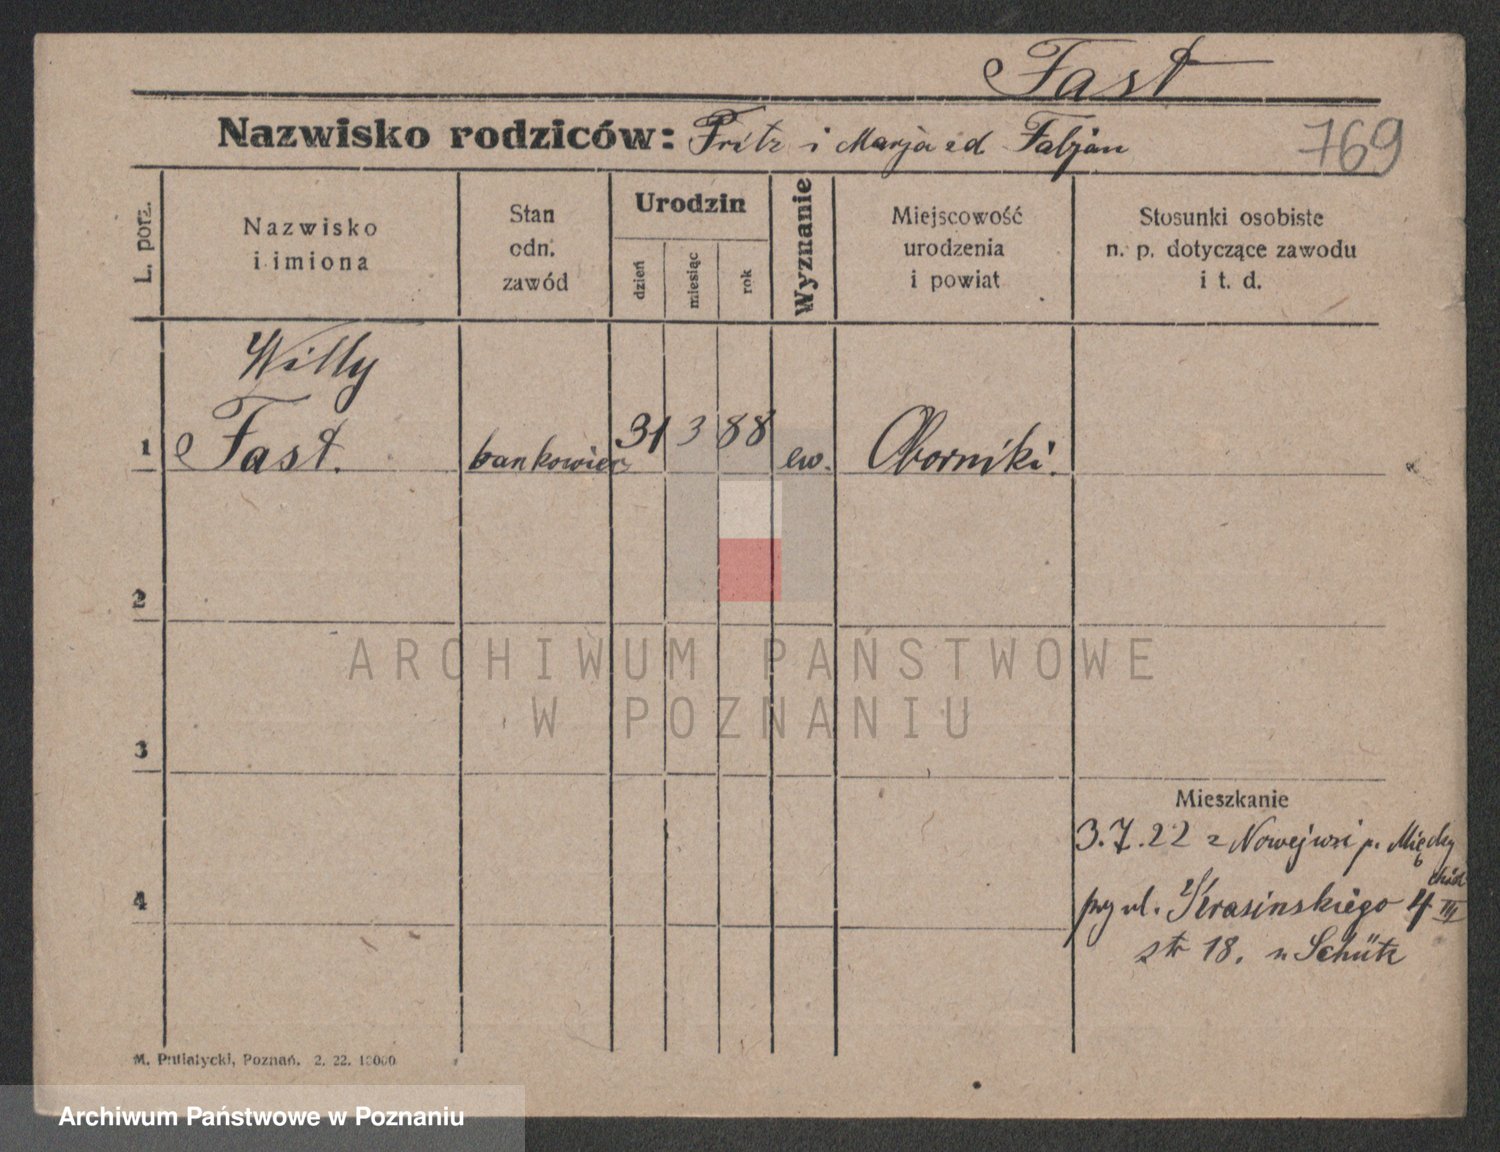 Fast
Nazwisko rodziców: Fritz i Marja zd Fabjan
769
L. porz.
Nazwisko
i imiona
Stan
cdn.
zawód
Urodzin
dzień
miesiąc
rok
Wyznanie
Miejscowość
urodzenia
i powiat
Stosunki osobiste
n. p. dotyczące zawodu
i t. d.
Willy
1 Fast. bankowiec 31 3 88 ew. Oborniki.
2
ARCHIWUM PAŃSTWOWE
W POZNANIU
3
Mieszkanie
3.7.22 z Nowejwsi p. Między
chód
4
przy ul. Krasinskiego 4 III
str 18. u Schütz
M. Putiatycki, Poznań. 2. 22. 10000
Archiwum Państwowe w Poznaniu